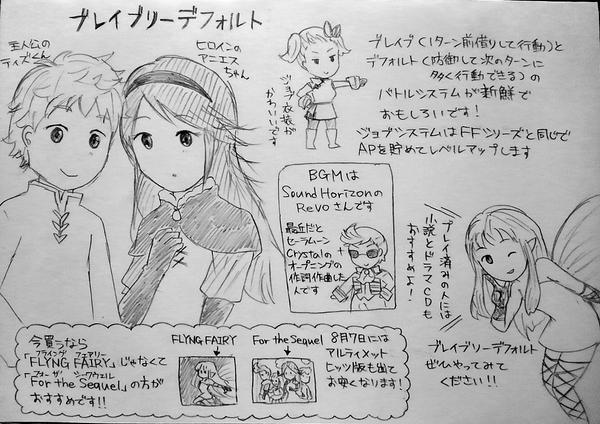 ブレイブリーデフォルト
主人公の
ティズくん
ヒロインの
アニエス
ちゃん
ジョブ衣装が
かわいいです
ブレイブ(1ターン前借りして行動)と
デフォルト(防御して次のターンに
多く行動できる)の
バトルシステムが新鮮で
おもしろいです!
ジョブシステムはFFシリーズと同じで
APを貯めてレベルアップします
BGMは
Sound Horizonの
Revoさんです
最近だと
セーラームーン
Crystalの
オープニングの
作詞作曲した
人です
プレイ済みの人には
小説とドラマCDも
おすすめよ!
ブレイブリーデフォルト
ぜひやってみて
ください!!
今買うなら
フライング フェアリー
「FLYNG FAIRY」じゃなくて
フォー ザ シークウェル
「For the Sequel」の方が
おすすめです!!
FLYNG FAIRY
For the Sequel
8月7日には
アルティメット
ヒッツ版も出て
お安くなります!